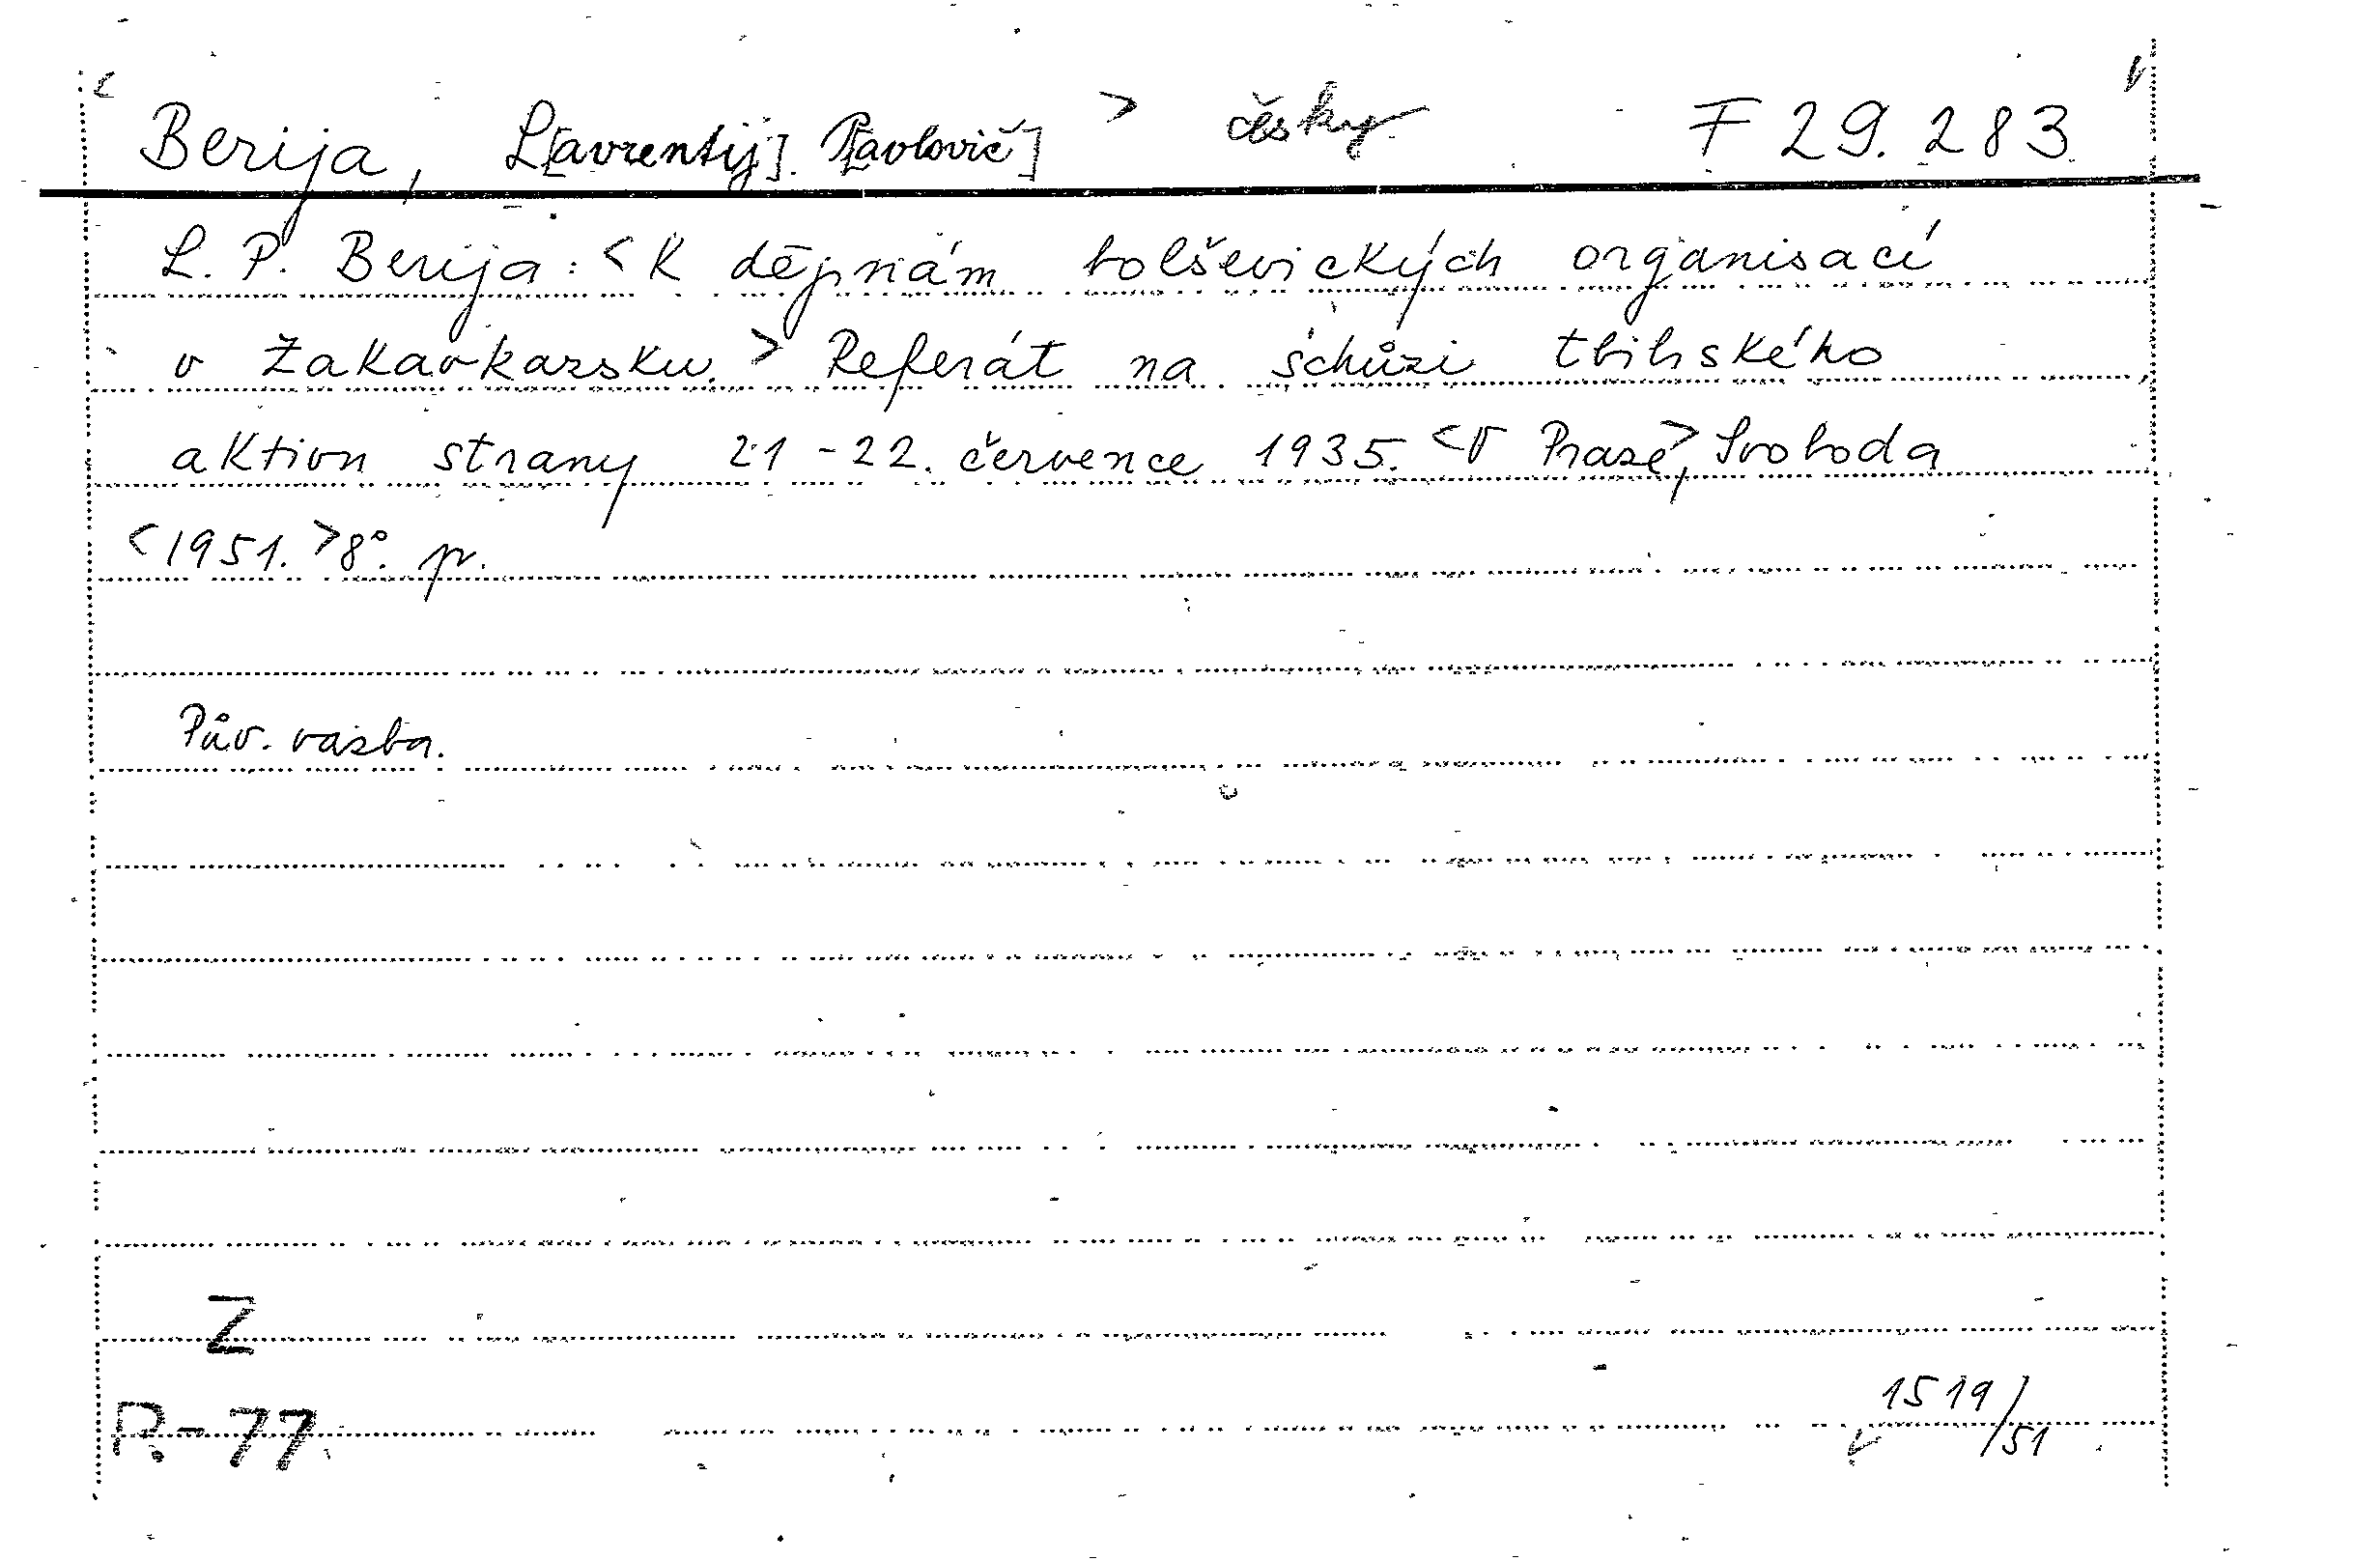 < Berija, L[avrentij]. P[avlovič] > česky F 29.283
L. P. Berija: < K dějinám bolševických organisací
v Zakavkazsku. > Referát na schůzi tbiliského
aktivu strany 21-22. července 1935. < V Praze, > Svoboda
< 1951. > 8°. pv.
Pův. vazba.
Z
P.-77
1519/51